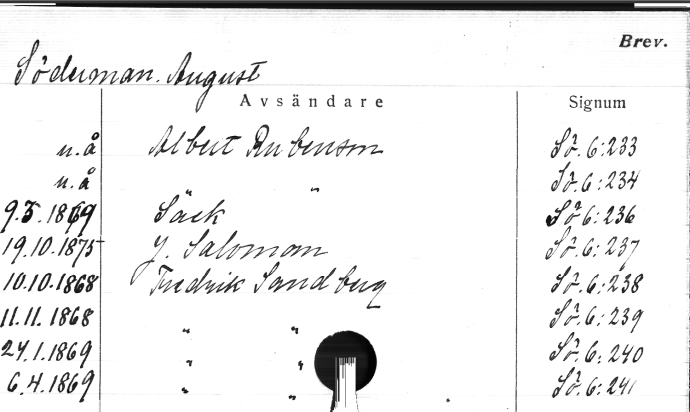 Brev.
Söderman. August
Avsändare Signum
u.å Albert Rubenson Sö. 6:233
u.å " Sö. 6:234
9.5.1879 Säck Sö 6:236
19.10.1875 J. Salomon Sö. 6:237
10.10.1868 Fredrik Sandberg Sö. 6:238
11.11.1868 " " Sö. 6:239
24.1.1869 " " Sö. 6:240
6.4.1869 " " Sö. 6:241